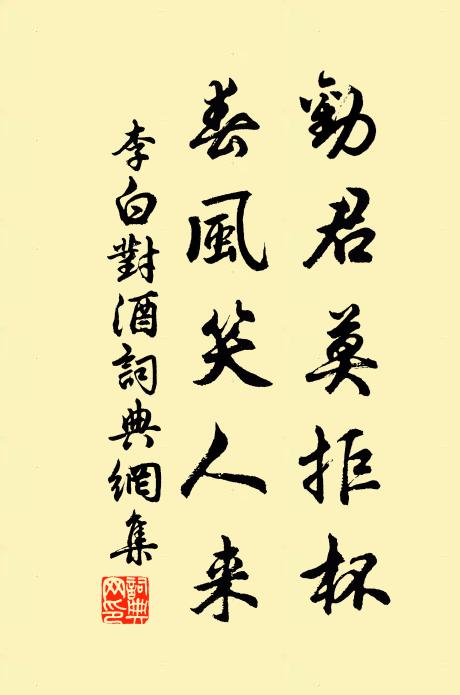 勸君莫拒杯
春風笑人来
李白對酒詞典網集
詞典網印